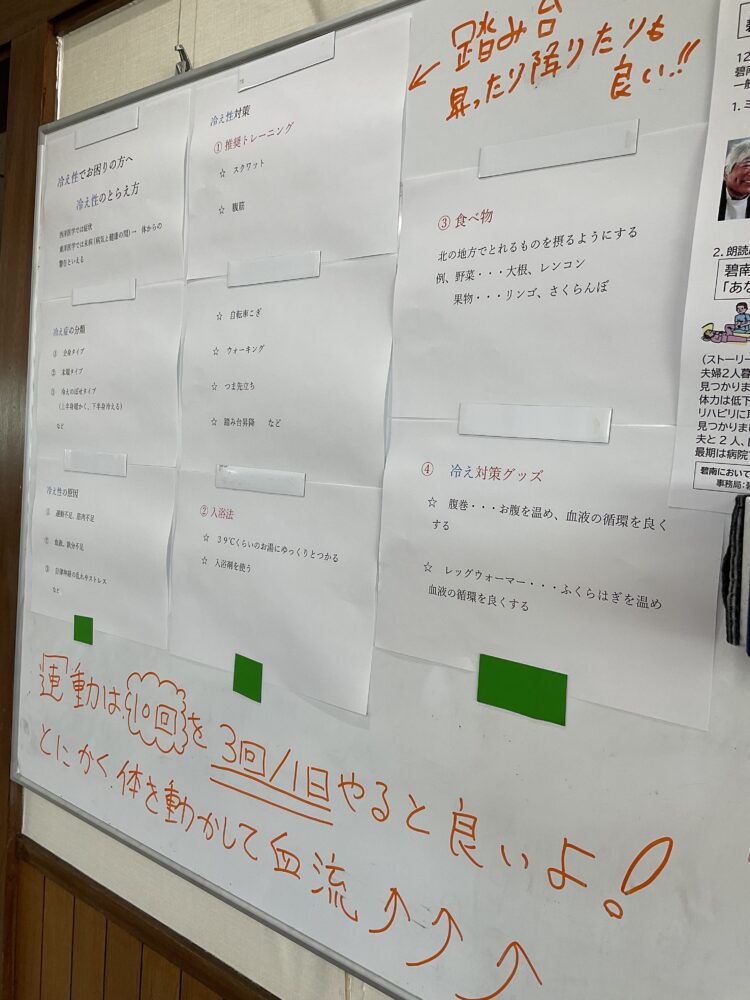 冷え性でお困りの方へ
冷え性のとらえ方
西洋医学では症状
東洋医学では未病（病気と健康の間）→ 体からの
警告といえる
冷え症の分類
① 全身タイプ
② 末端タイプ
③ 冷えのぼせタイプ
（上半身暖かく、下半身冷える）
など
冷え性の原因
① 運動不足、筋肉不足
② 貧血、鉄分不足
③ 自律神経の乱れやストレス
など
冷え性対策
①推奨トレーニング
☆ スクワット
☆ 腹筋
☆ 自転車こぎ
☆ ウォーキング
☆ つま先立ち
☆ 踏み台昇降 など
②入浴法
☆ 39℃くらいのお湯にゆっくりとつかる
☆ 入浴剤を使う
←踏み台
昇ったり降りたりも
良い!!
③ 食べ物
北の地方でとれるものを摂るようにする
例、野菜・・・大根、レンコン
果物・・・リンゴ、さくらんぼ
④ 冷え対策グッズ
☆ 腹巻・・・お腹を温め、血液の循環を良く
する
☆ レッグウォーマー・・・ふくらはぎを温め
血液の循環を良くする
運動は10回を3回/1日やると良いよ！
とにかく体を動かして血流↑↑↑
碧南
一般
2. 朗読
碧南
「あな
（ストーリー
夫婦2人暮
見つかりま
体力は低下
リハビリに
見つかりま
夫と2人、
最期は病院
碧南において
事務局：碧